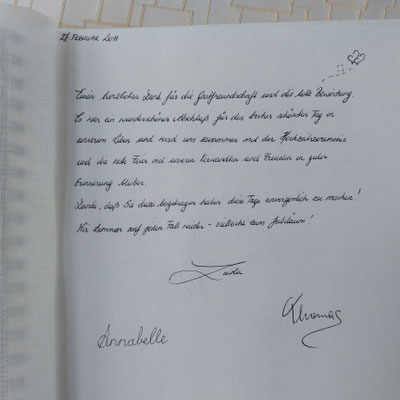 27. FEBRUAR 2011
Einen herzlichen Dank für die Gastfreundschaft und die tolle Bewirtung.
Es war ein wunderschöner Abschluß für den bisher schönsten Tag in
unserem Leben und wird uns zusammen mit der Hochzeitszeremonie
und die tolle Feier mit unseren Verwandten und Freunden in guter
Erinnerung bleiben.
Danke, daß Sie dazu beigetragen haben diese Tage unvergesslich zu machen!
Wir kommen auf jeden Fall wieder - vielleicht zum Jubiläum!
Annabelle
Thomas